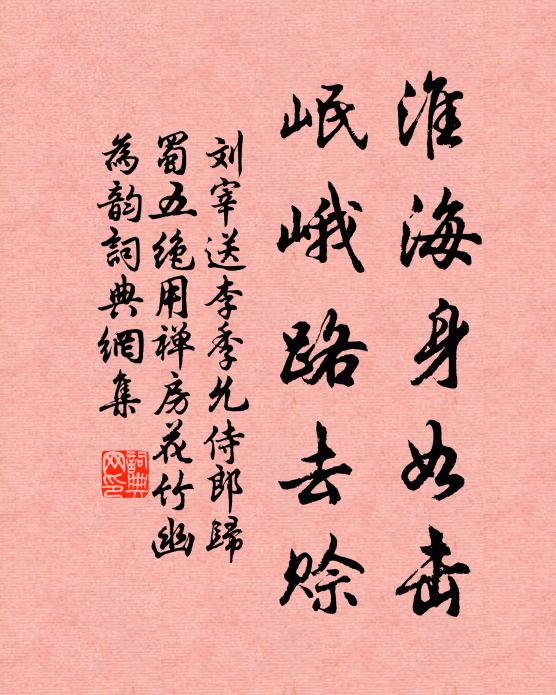 淮海身如击
岷峨路去赊
刘宰送李季允侍郎歸
蜀五绝用禅房花竹幽
為韵詞典網集
詞典
网印